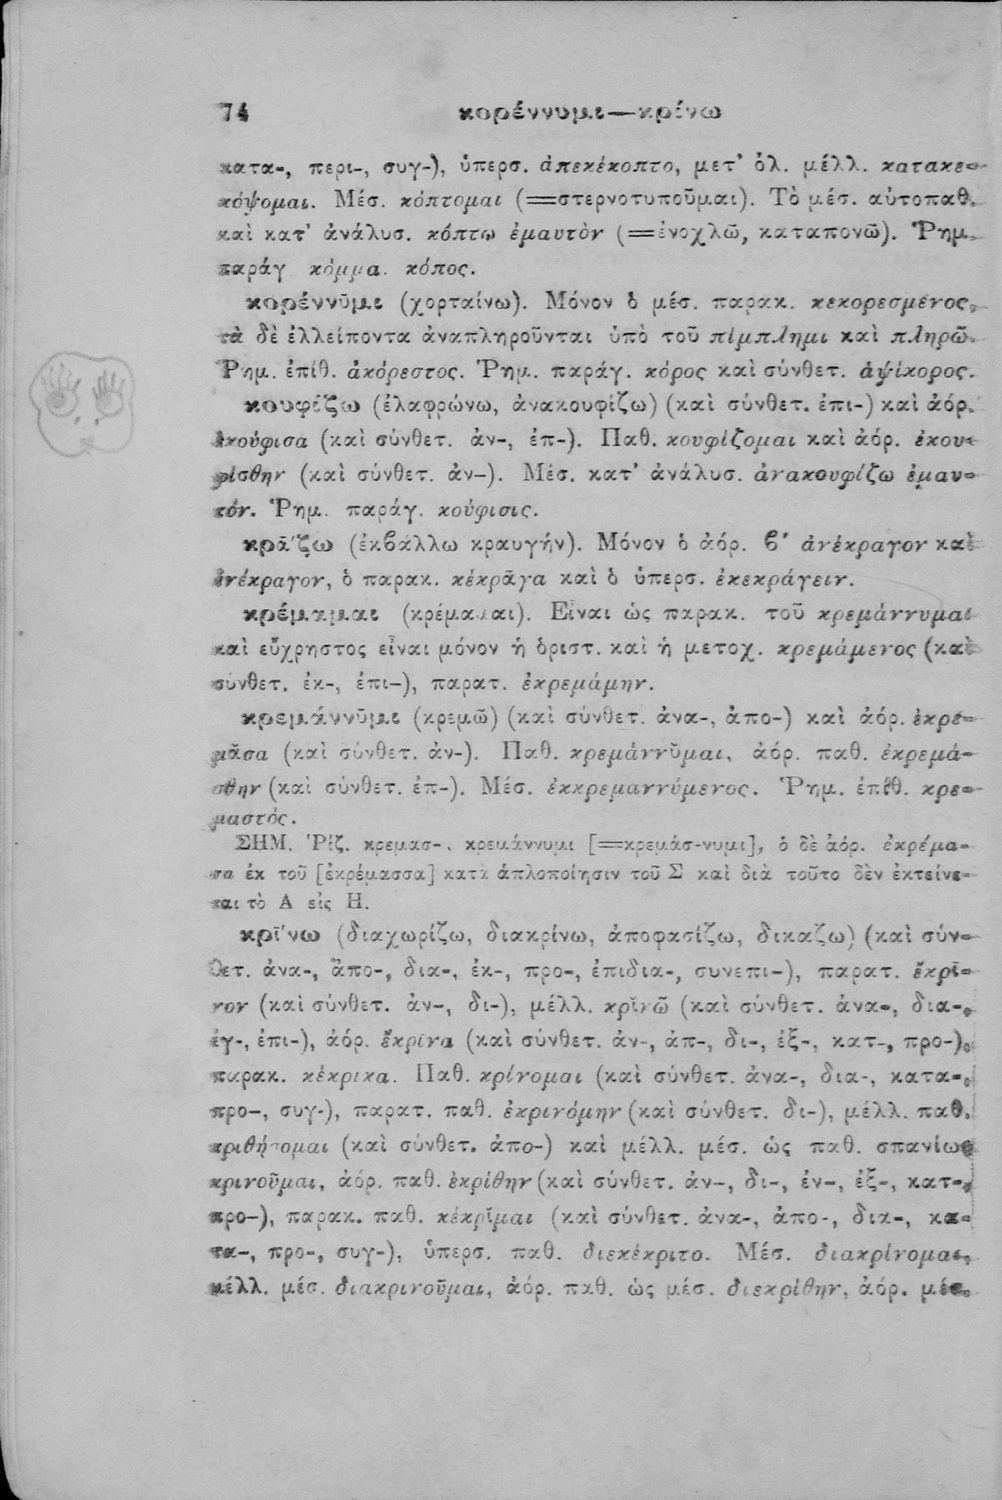 74 κορέννυμι—κρίνω
κατα-, περι-, συγ-), ὑπερσ. ἀπεκέκοπτο, μετ' ὁλ. μέλλ. κατακε-
κόψομαι. Μέσ. κόπτομαι (=στερνοτυποῦμαι). Τὸ μέσ. αὐτοπαθ.
καὶ κατ' ἀνάλυσ. κόπτω ἐμαυτὸν (=ἐνοχλῶ, καταπονῶ). Ῥημ.
παράγ κόμμα. κόπος.
κορέννῡμι (χορταίνω). Μόνον ὁ μέσ. παρακ. κεκορεσμένος,
τὰ δὲ ἐλλείποντα ἀναπληροῦνται ὑπὸ τοῦ πίμπλημι καὶ πληρῶ.
Ῥημ. ἐπίθ. ἀκόρεστος. Ῥημ. παράγ. κόρος καὶ σύνθετ. ἁψίκορος.
κουφίζω (ἐλαφρώνω, ἀνακουφίζω) (καὶ σύνθετ. ἐπι-) καὶ ἀόρ.
ἐκούφισα (καὶ σύνθετ. ἀν-, ἐπ-). Παθ. κουφίζομαι καὶ ἀόρ. ἐκου-
φίσθην (καὶ σύνθετ. ἀν-). Μέσ. κατ' ἀνάλυσ. ἀνακουφίζω ἐμαυ-
τόν. Ῥημ. παράγ. κούφισις.
κρᾱ́ζω (ἐκβάλλω κραυγήν). Μόνον ὁ ἀόρ. β' ἀνέκραγον καὶ
ἐνέκραγον, ὁ παρακ. κέκρᾱγα καὶ ὁ ὑπερσ. ἐκεκράγειν.
κρέμαμαι (κρέμαμαι). Εἶναι ὡς παρακ. τοῦ κρεμάννυμαι
καὶ εὔχρηστος εἶναι μόνον ἡ ὁριστ. καὶ ἡ μετοχ. κρεμάμενος (καὶ
σύνθετ. ἐκ-, ἐπι-), παρατ. ἐκρεμάμην.
κρεμάννῡμι (κρεμῶ) (καὶ σύνθετ. ἀνα-, ἀπο-) καὶ ἀόρ. ἐκρέ-
μᾰσα (καὶ σύνθετ. ἀν-). Παθ. κρεμάννῠμαι, ἀόρ. παθ. ἐκρεμά-
σθην (καὶ σύνθετ. ἐπ-). Μέσ. ἐκκρεμαννύμενος. Ῥημ. ἐπίθ. κρε-
μαστός.
ΣΗΜ. Ῥίζ. κρεμασ-, κρεμάννυμι [=κρεμάσ-νυμι], ὁ δὲ ἀόρ. ἐκρέμα-
σα ἐκ τοῦ [ἐκρέμασσα] κατὰ ἁπλοποίησιν τοῦ Σ καὶ διὰ τοῦτο δὲν ἐκτείνε-
ται τὸ Α εἰς Η.
κρῑ́νω (διαχωρίζω, διακρίνω, ἀποφασίζω, δικάζω) (καὶ σύν-
θετ. ἀνα-, ἀπο-, δια-, ἐκ-, προ-, ἐπιδια-, συνεπι-), παρατ. ἔκρῑ-
νον (καὶ σύνθετ. ἀν-, δι-), μέλλ. κρῐνῶ (καὶ σύνθετ. ἀνα-, δια-,
ἐγ-, ἐπι-), ἀόρ. ἔκρῑνα (καὶ σύνθετ. ἀν-, ἀπ-, δι-, ἐξ-, κατ-, προ-),
παρακ. κέκρικα. Παθ. κρίνομαι (καὶ σύνθετ. ἀνα-, δια-, κατα-,
προ-, συγ-), παρατ. παθ. ἐκρινόμην (καὶ σύνθετ. δι-), μέλλ. παθ.
κριθήσομαι (καὶ σύνθετ. ἀπο-) καὶ μέλλ. μέσ. ὡς παθ. σπανίως
κρινοῦμαι, ἀόρ. παθ. ἐκρίθην (καὶ σύνθετ. ἀν-, δι-, ἐν-, ἐξ-, κατ-,
προ-), παρακ. παθ. κέκρῐμαι (καὶ σύνθετ. ἀνα-, ἀπο-, δια-, κα-
τα-, προ-, συγ-), ὑπερσ. παθ. διεκέκριτο. Μέσ. διακρίνομαι,
μέλλ. μέσ. διακρινοῦμαι, ἀόρ. παθ. ὡς μέσ. διεκρίθην, ἀόρ. μέσ.